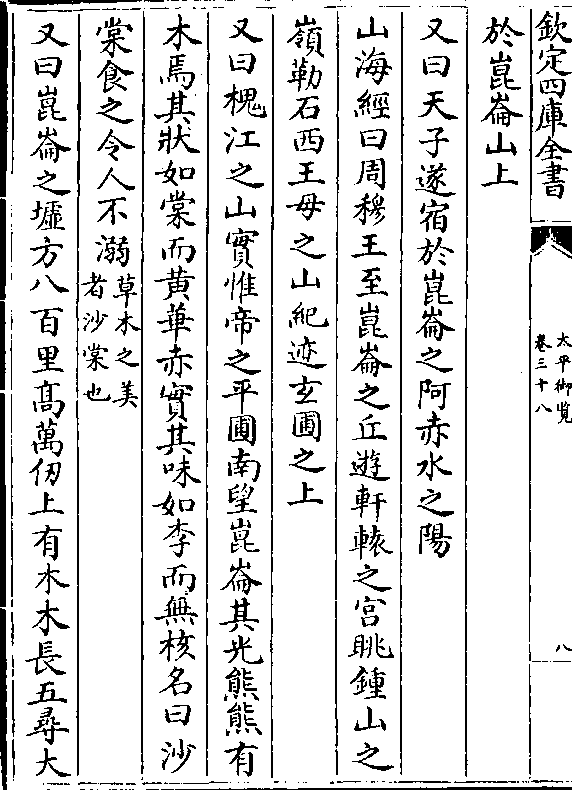 欽定四庫全書
太平御覧
卷三十八
八
於崑崙山上
又曰天子遂宿於崑崙之阿赤水之陽
山海經曰周穆王至崑崙之丘遊軒轅之宮眺鍾山之
嶺勒石西王母之山紀迹玄圃之上
又曰槐江之山實惟帝之平圃南望崑崙其光熊熊有
木焉其狀如棠而黄華赤實其味如李而無核名曰沙
棠食之令人不溺草木之美
者沙棠也
又曰崑崙之墟方八百里髙萬仞上有木木長五尋大